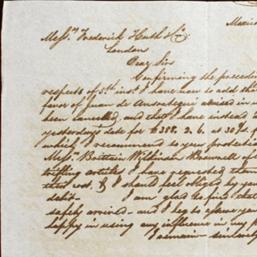 Mexico
Messrs Frederick Huth & Co.
London
Dear Sirs
Confirming the preceding
respects of 5th inst I have now to add that
favor of Juan de advised in
been cancelled, and that I have instead
yesterdays date for £388. 2. 6. at 30 d
which I recommend to your protection
Messrs. Brittain Wilkinson Brownell &
trifling articles I have requested them
that cost, & I should feel obliged by you
debit. I am glad to find that
safely arrived and I beg to assure you
happy in using any influence in my
I remain sincerely